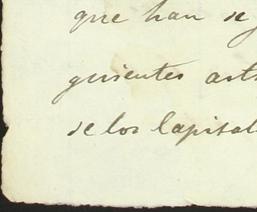 que han de
guientes arts
de los Capital